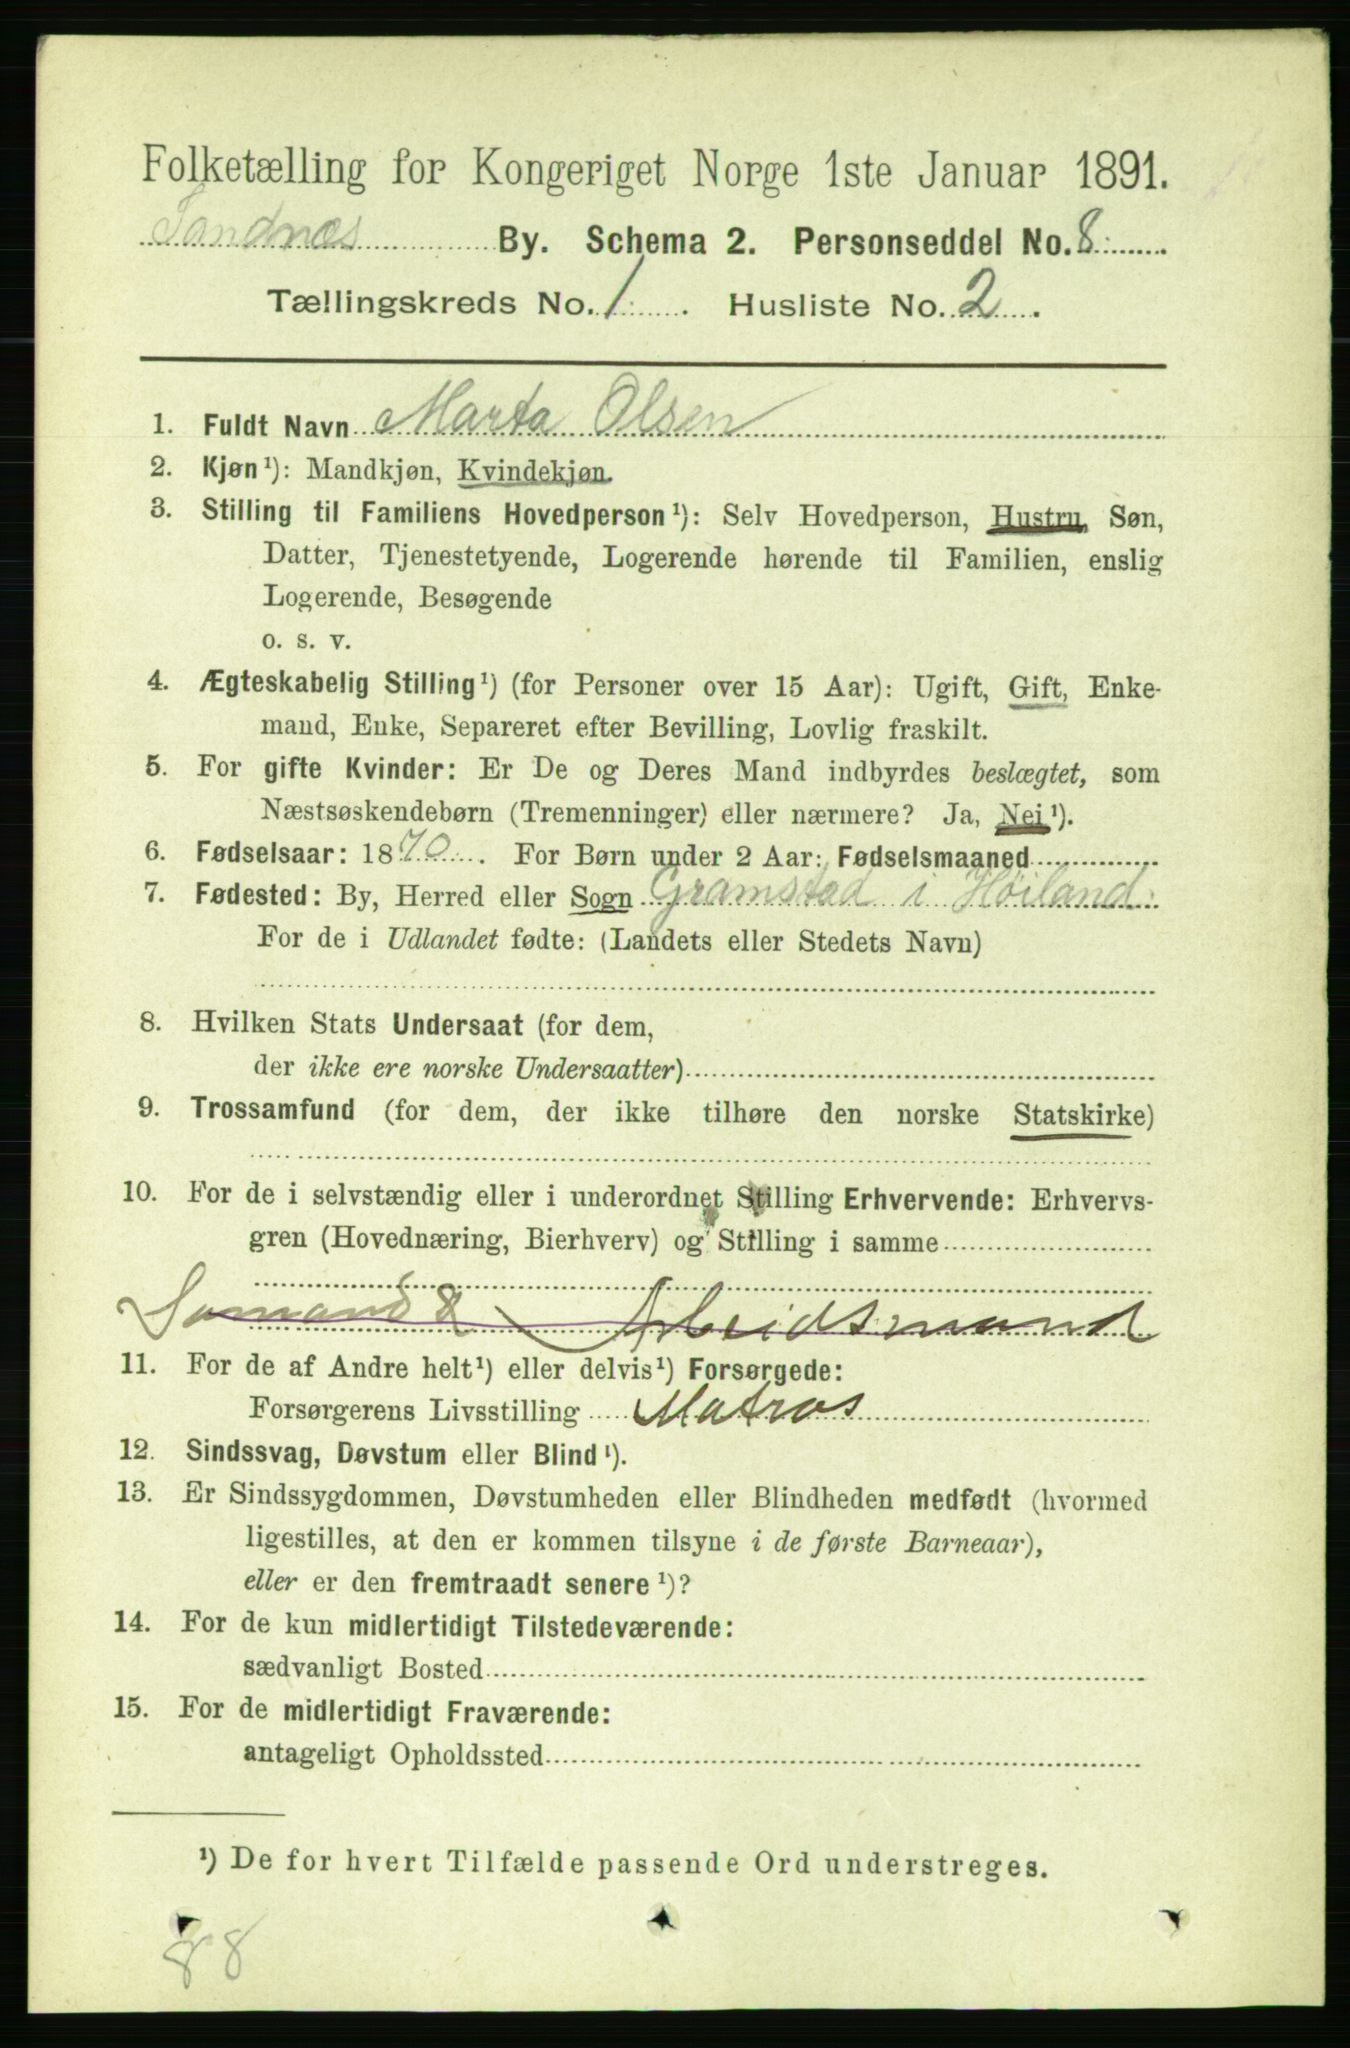 Folketælling for Kongeriget Norge 1ste Januar 1891.
Sandnæs By. Schema 2. Personseddel No. 8
Tællingskreds No. 1. Husliste No. 2.
1. Fuldt Navn Marta Olsen
2. Kjøn¹): Mandkjøn, Kvindekjøn.
3. Stilling til Familiens Hovedperson¹): Selv Hovedperson, Hustru, Søn,
Datter, Tjenestetyende, Logerende hørende til Familien, enslig
Logerende, Besøgende
o. s. v.
4. Ægteskabelig Stilling¹) (for Personer over 15 Aar): Ugift, Gift, Enke-
mand, Enke, Separeret efter Bevilling, Lovlig fraskilt.
5. For gifte Kvinder: Er De og Deres Mand indbyrdes beslægtet, som
Næstsøskendebørn (Tremenninger) eller nærmere? Ja, Nei¹).
6. Fødselsaar: 1870. For Børn under 2 Aar: Fødselsmaaned
7. Fødested: By, Herred eller Sogn Gramstad i Høiland
For de i Udlandet fødte: (Landets eller Stedets Navn)
8. Hvilken Stats Undersaat (for dem,
der ikke ere norske Undersaatter)
9. Trossamfund (for dem, der ikke tilhøre den norske Statskirke)
10. For de i selvstændig eller i underordnet Stilling Erhvervende: Erhvervs-
gren (Hovednæring, Bierhverv) og Stilling i samme
Sømand & Arbeidsmand
11. For de af Andre helt¹) eller delvis¹) Forsørgede:
Forsørgerens Livsstilling Matros
12. Sindssvag, Døvstum eller Blind¹).
13. Er Sindssygdommen, Døvstumheden eller Blindheden medfødt (hvormed
ligestilles, at den er kommen tilsyne i de første Barneaar),
eller er den fremtraadt senere¹)?
14. For de kun midlertidigt Tilstedeværende:
sædvanligt Bosted
15. For de midlertidigt Fraværende:
antageligt Opholdssted
¹) De for hvert Tilfælde passende Ord understreges.
88